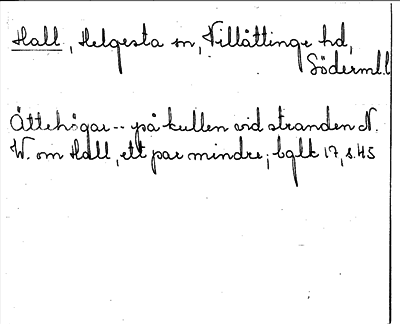 Hall, Helgesta sn, Villåttinge hd,
Söderml.l
Ättehögar -- på kullen vid stranden N.
W. om Hall, ett par mindre; bglk 17, s. 45